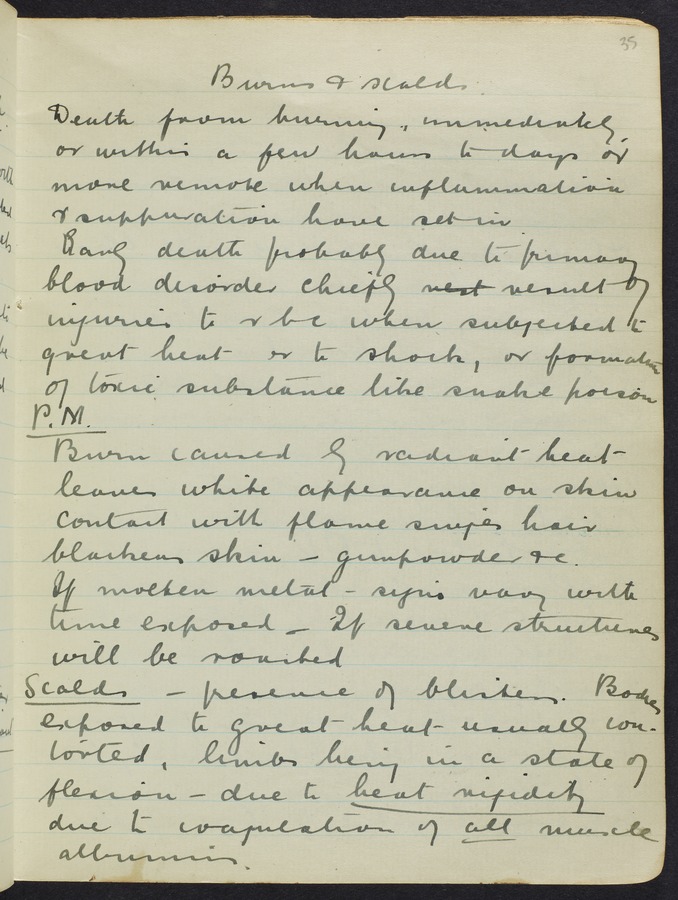 35
Burns & scalds.
Death from burning, immediately,
or within a few hours to days or
more remote when inflammation
& suppuration have set in
Early death probably due to primary
blood disorder chiefly rest result of
injuries to r b c when subjected to
great heat or to shock, or formation
of toxic substance like snake poison
P.M.
Burn caused by radiant heat
leaves white appearance on skin
contact with flame singes hair
blackens skin – gunpowder &c.
If molten metal – signs vary with
time exposed – If severe structures
will be roasted
Scalds – presence of blisters. Bodies
exposed to great heat usually con-
torted, limbs being in a state of
flexion – due to heat rigidity
due to coagulation of all muscle
albumins.